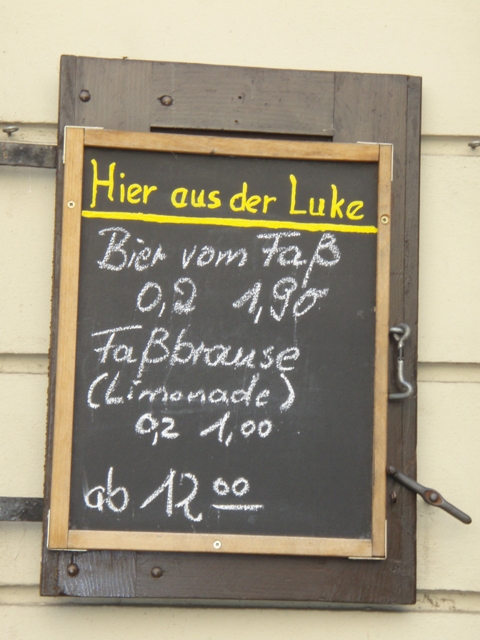 Hier aus der Luke
Bier vom Faß
0,2 1,90
Faßbrause
(Limonade)
0,2 1,00
ab 12 00